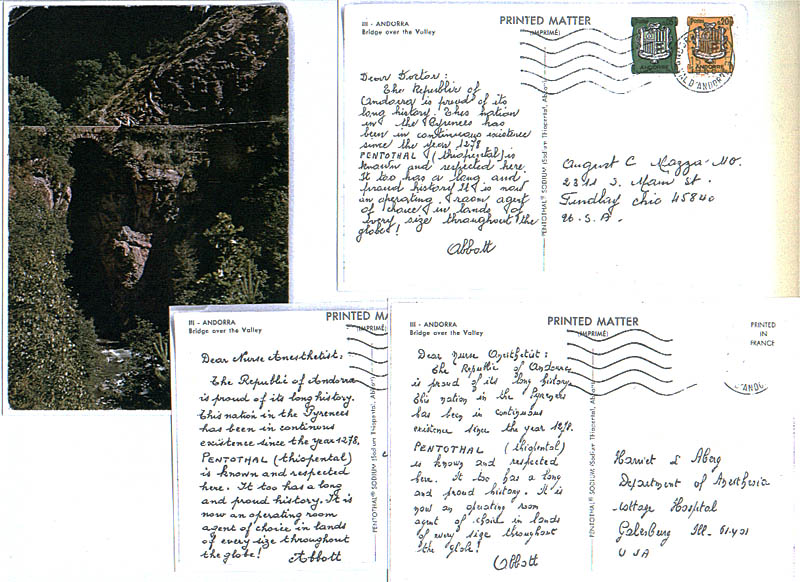 III - ANDORRA
Bridge over the Valley
PRINTED MATTER
(IMPRIMÉ)
Dear Doctor:
The Republic of
Andorra is proud of its
long history. This nation
in the Pyrenees has
been in continueous existence
since the year 1278
PENTOTHAL (thiopental) is
known and respected here.
It too has a long and
proud history. It is now
an operating room agent
of choice in lands of
every size throughout the
globe!
Abbott
PENTOTHAL® SODIUM (Sodium Thiopental, Abbott)
August C Mazza MO.
S. Main St.
Findlay Ohio 45840
U.S.A.
III - ANDORRA
Bridge over the Valley
PRINTED MA
(IMPRIMÉ)
Dear Nurse Anesthetist:
The Republic of Andorra
is proud of its long history.
This nation in the Pyrenees
has been in continous
existence since the year 1278.
PENTOTHAL (thiopental)
is known and respected
here. It too has a long
and proud history. It is
now an operating room
agent of choice in lands
of every size throughout
the globe!
Abbott
PENTOTHAL® SODIUM (Sodium Thiopental, Abbott)
III - ANDORRA
Bridge over the Valley
PRINTED MATTER
(IMPRIMÉ)
PRINTED
IN
FRANCE
Dear Nurse Anesthetist:
The Republic of Andorra
is proud of its long history
This nation in the Pyrenees
has been in continuous
existence since the year 1278.
PENTOTHAL (thiopental)
is known and respected
here. It too has a long
and proud history. It is
now an operating room
agent of choice in lands
of every size throughout
the globe!
Abbott
PENTOTHAL® SODIUM (Sodium Thiopental, Abbott)
Harriet L Aberg
Department of Anesthesia
Cottage Hospital
Galesburg Ill. 61401
U S A